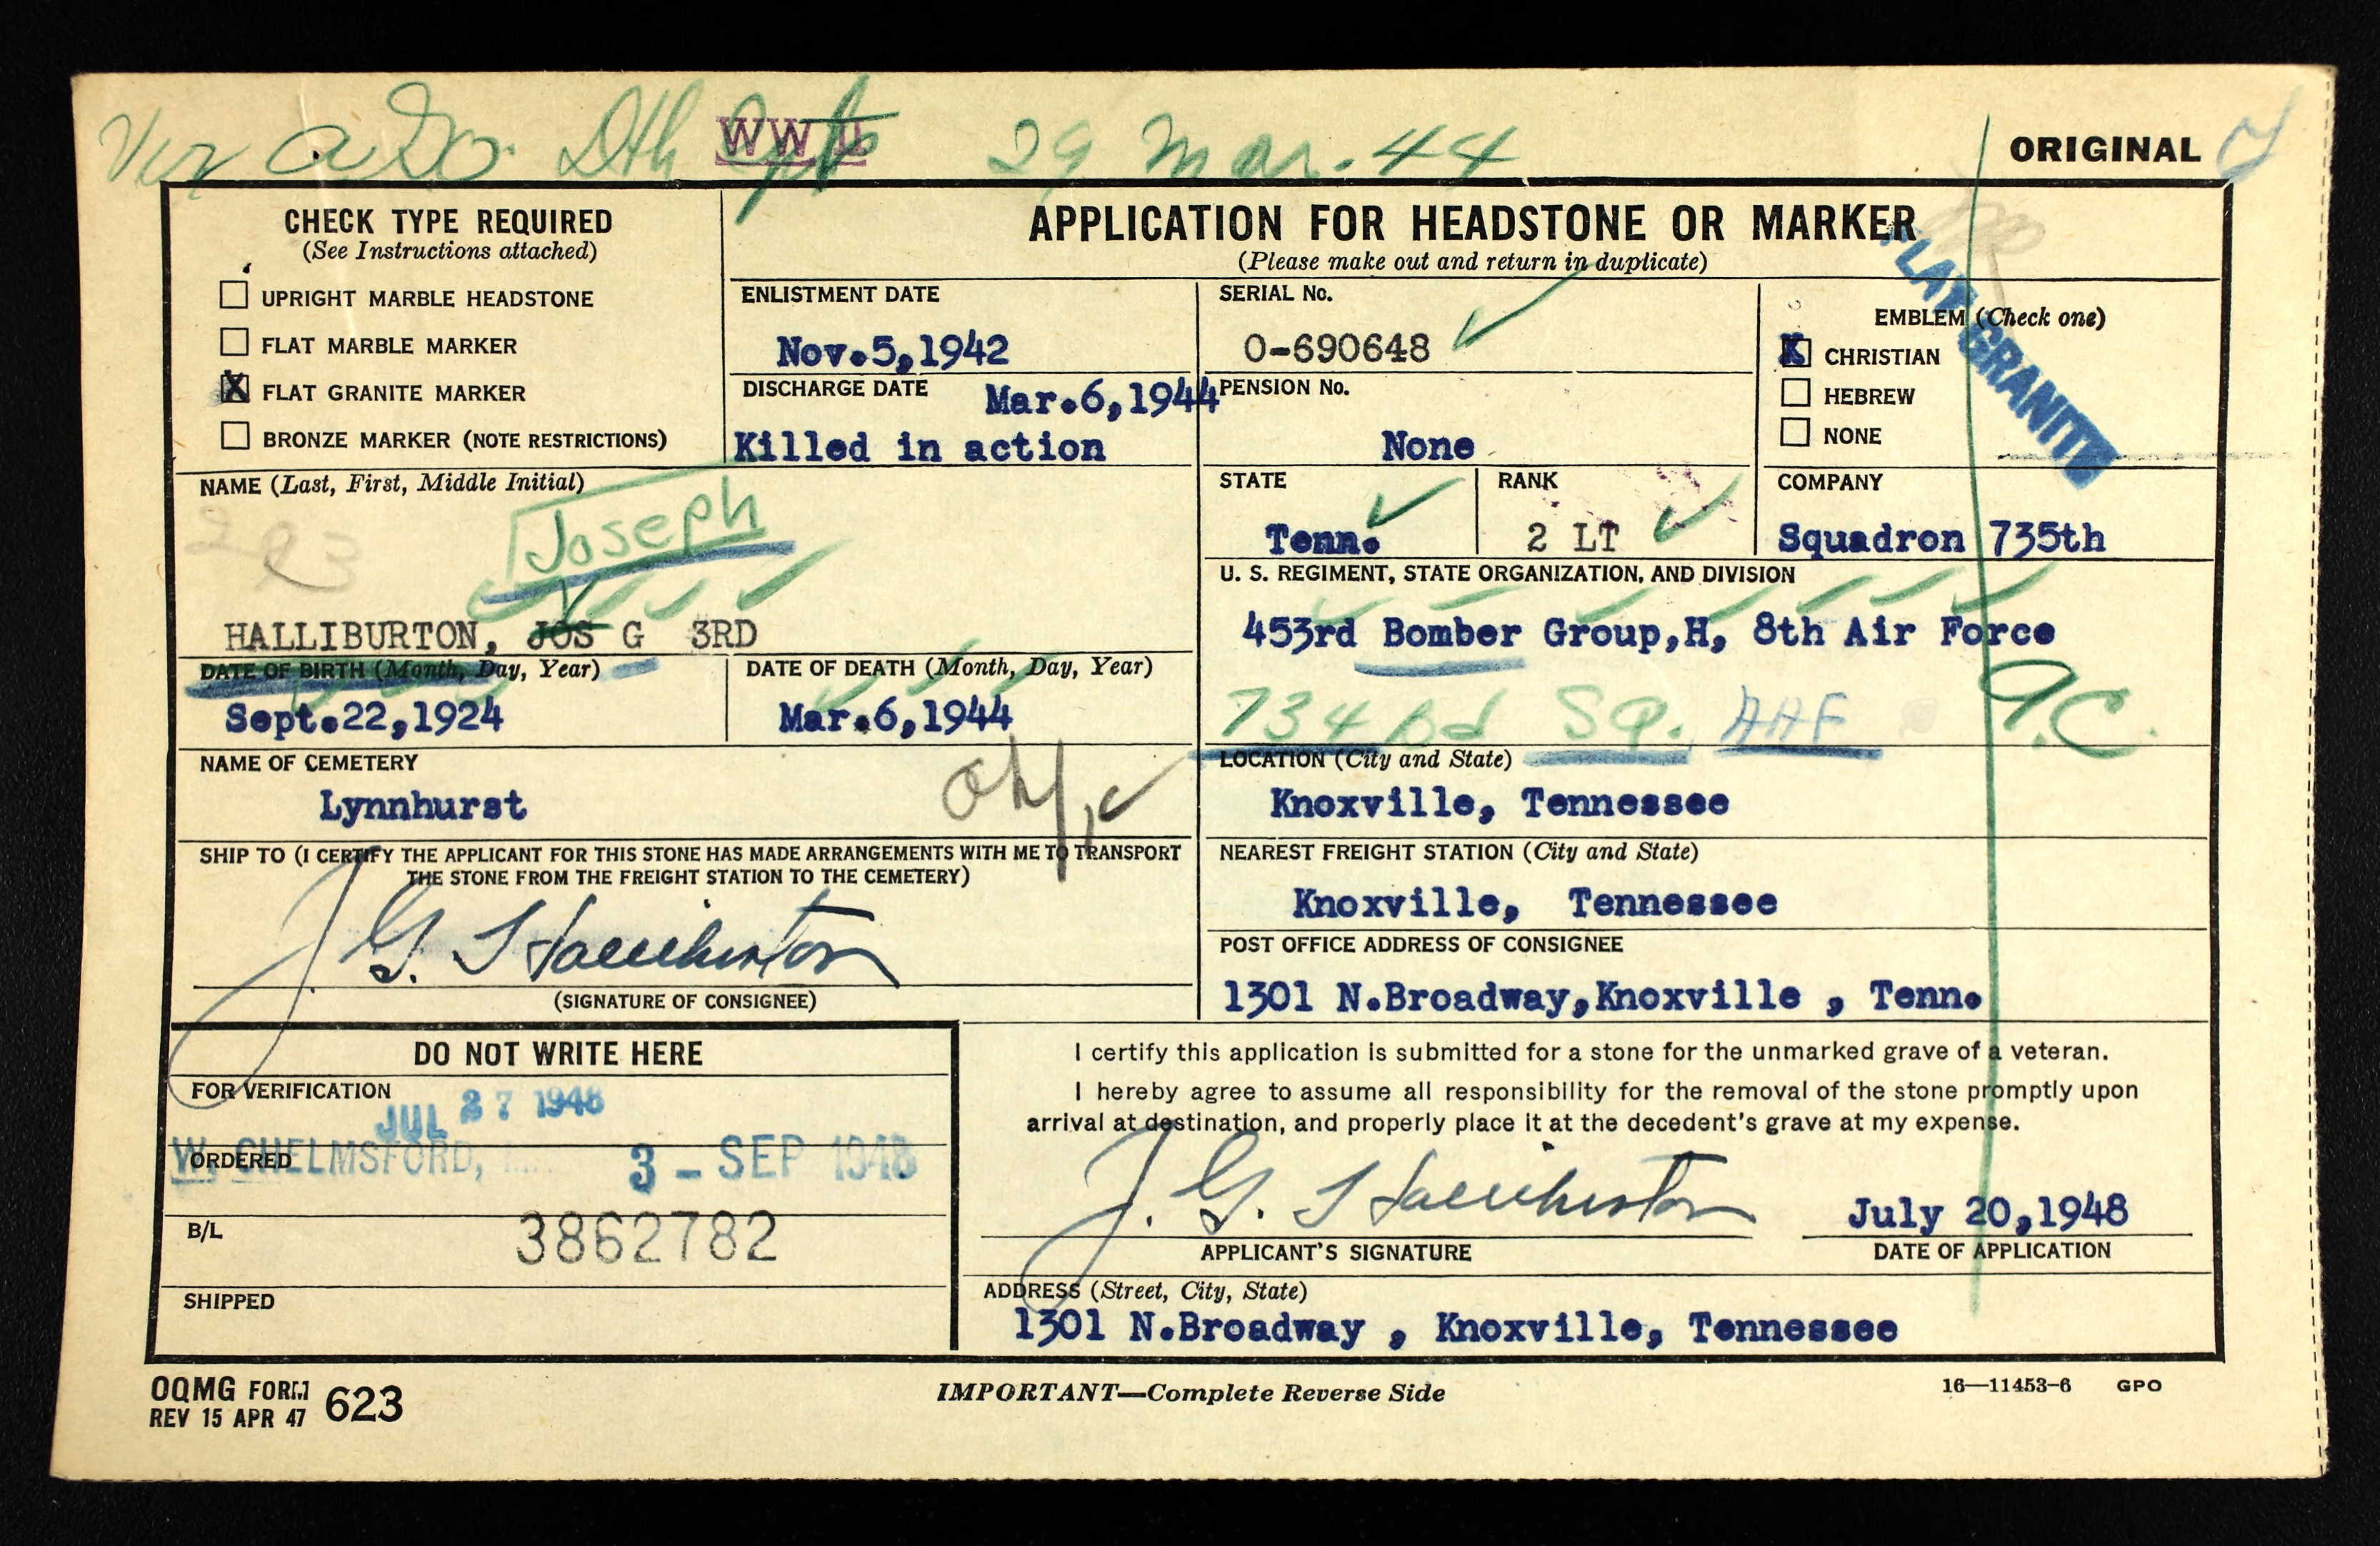 Ver AGO Dth Rpts 29 Mar. 44
WW II
ORIGINAL
CHECK TYPE REQUIRED
(See Instructions attached)
UPRIGHT MARBLE HEADSTONE
FLAT MARBLE MARKER
X FLAT GRANITE MARKER
BRONZE MARKER (NOTE RESTRICTIONS)
APPLICATION FOR HEADSTONE OR MARKER
(Please make out and return in duplicate)
ENLISTMENT DATE
Nov.5,1942
DISCHARGE DATE Mar.6,1944
Killed in action
SERIAL No.
O-690648
PENSION No.
None
EMBLEM (Check one)
X CHRISTIAN
HEBREW
NONE
FLAT GRANITE
NAME (Last, First, Middle Initial)
293
Joseph
HALLIBURTON, JOS G 3RD
STATE
Tenn.
RANK
2 LT
COMPANY
Squadron 735th
U. S. REGIMENT, STATE ORGANIZATION, AND DIVISION
453rd Bomber Group,H, 8th Air Force
734 bd Sq. AAF
DATE OF BIRTH (Month, Day, Year)
Sept.22,1924
DATE OF DEATH (Month, Day, Year)
Mar.6,1944
NAME OF CEMETERY
Lynnhurst
LOCATION (City and State)
Knoxville, Tennessee
SHIP TO (I CERTIFY THE APPLICANT FOR THIS STONE HAS MADE ARRANGEMENTS WITH ME TO TRANSPORT
THE STONE FROM THE FREIGHT STATION TO THE CEMETERY)
J. G. Halliburton
(SIGNATURE OF CONSIGNEE)
NEAREST FREIGHT STATION (City and State)
Knoxville, Tennessee
POST OFFICE ADDRESS OF CONSIGNEE
1301 N.Broadway,Knoxville , Tenn.
DO NOT WRITE HERE
FOR VERIFICATION
JUL 27 1948
ORDERED
W. CHELMSFORD, 3 - SEP 1948
B/L
3862782
SHIPPED
I certify this application is submitted for a stone for the unmarked grave of a veteran.
I hereby agree to assume all responsibility for the removal of the stone promptly upon
arrival at destination, and properly place it at the decedent's grave at my expense.
J. G. Halliburton
APPLICANT'S SIGNATURE
July 20,1948
DATE OF APPLICATION
ADDRESS (Street, City, State)
1301 N.Broadway , Knoxville, Tennessee
OQMG FORM 623
REV 15 APR 47
IMPORTANT—Complete Reverse Side
16—11453-6 GPO